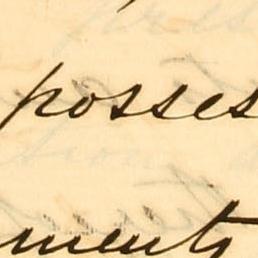 posses
ments